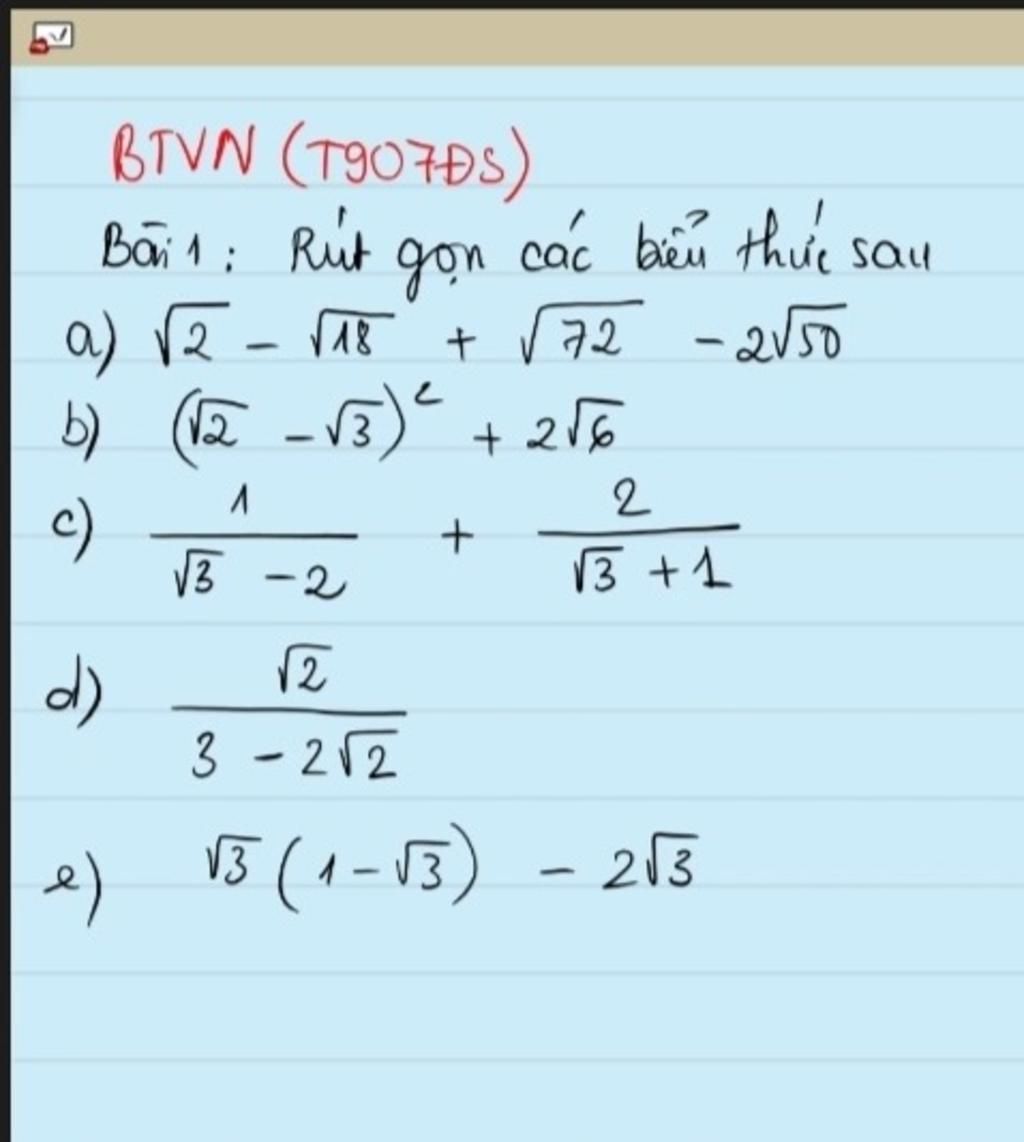 BTVN (T907ĐS)
Bài 1 : Rút gọn các biểu thức sau
a) √2 - √18 + √72 - 2√50
b) (√2 - √3)² + 2√6
c) 1/(√3 - 2) + 2/(√3 + 1)
d) √2/(3 - 2√2)
e) √3 (1 - √3) - 2√3